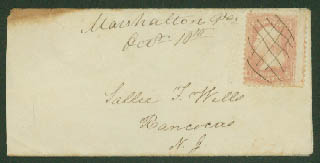 Marshallton Pa.
Oct 18th
Sallie T. Wills
Rancocas
N. J.